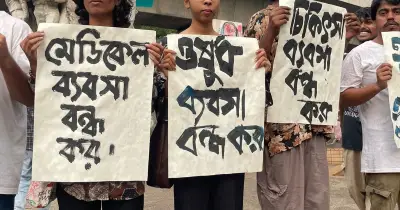 মেডিকেল
ব্যবসা
বন্ধ
কর!
ওষুধ
ব্যবসা
বন্ধ কর
চিকিৎসা
ব্যবসা
বন্ধ
কর